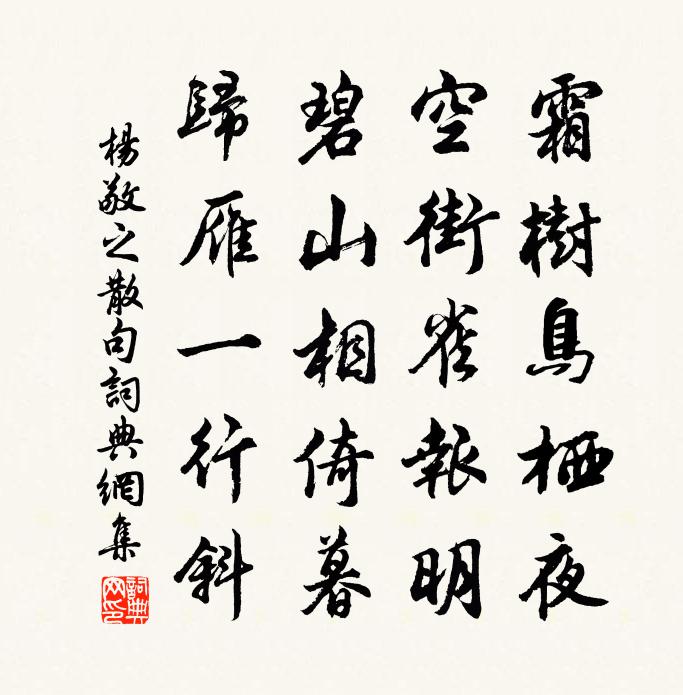 霜樹鳥栖夜
空街雀報明
碧山相倚暮
歸雁一行斜
楊敬之散句詞典網集
詞典網印